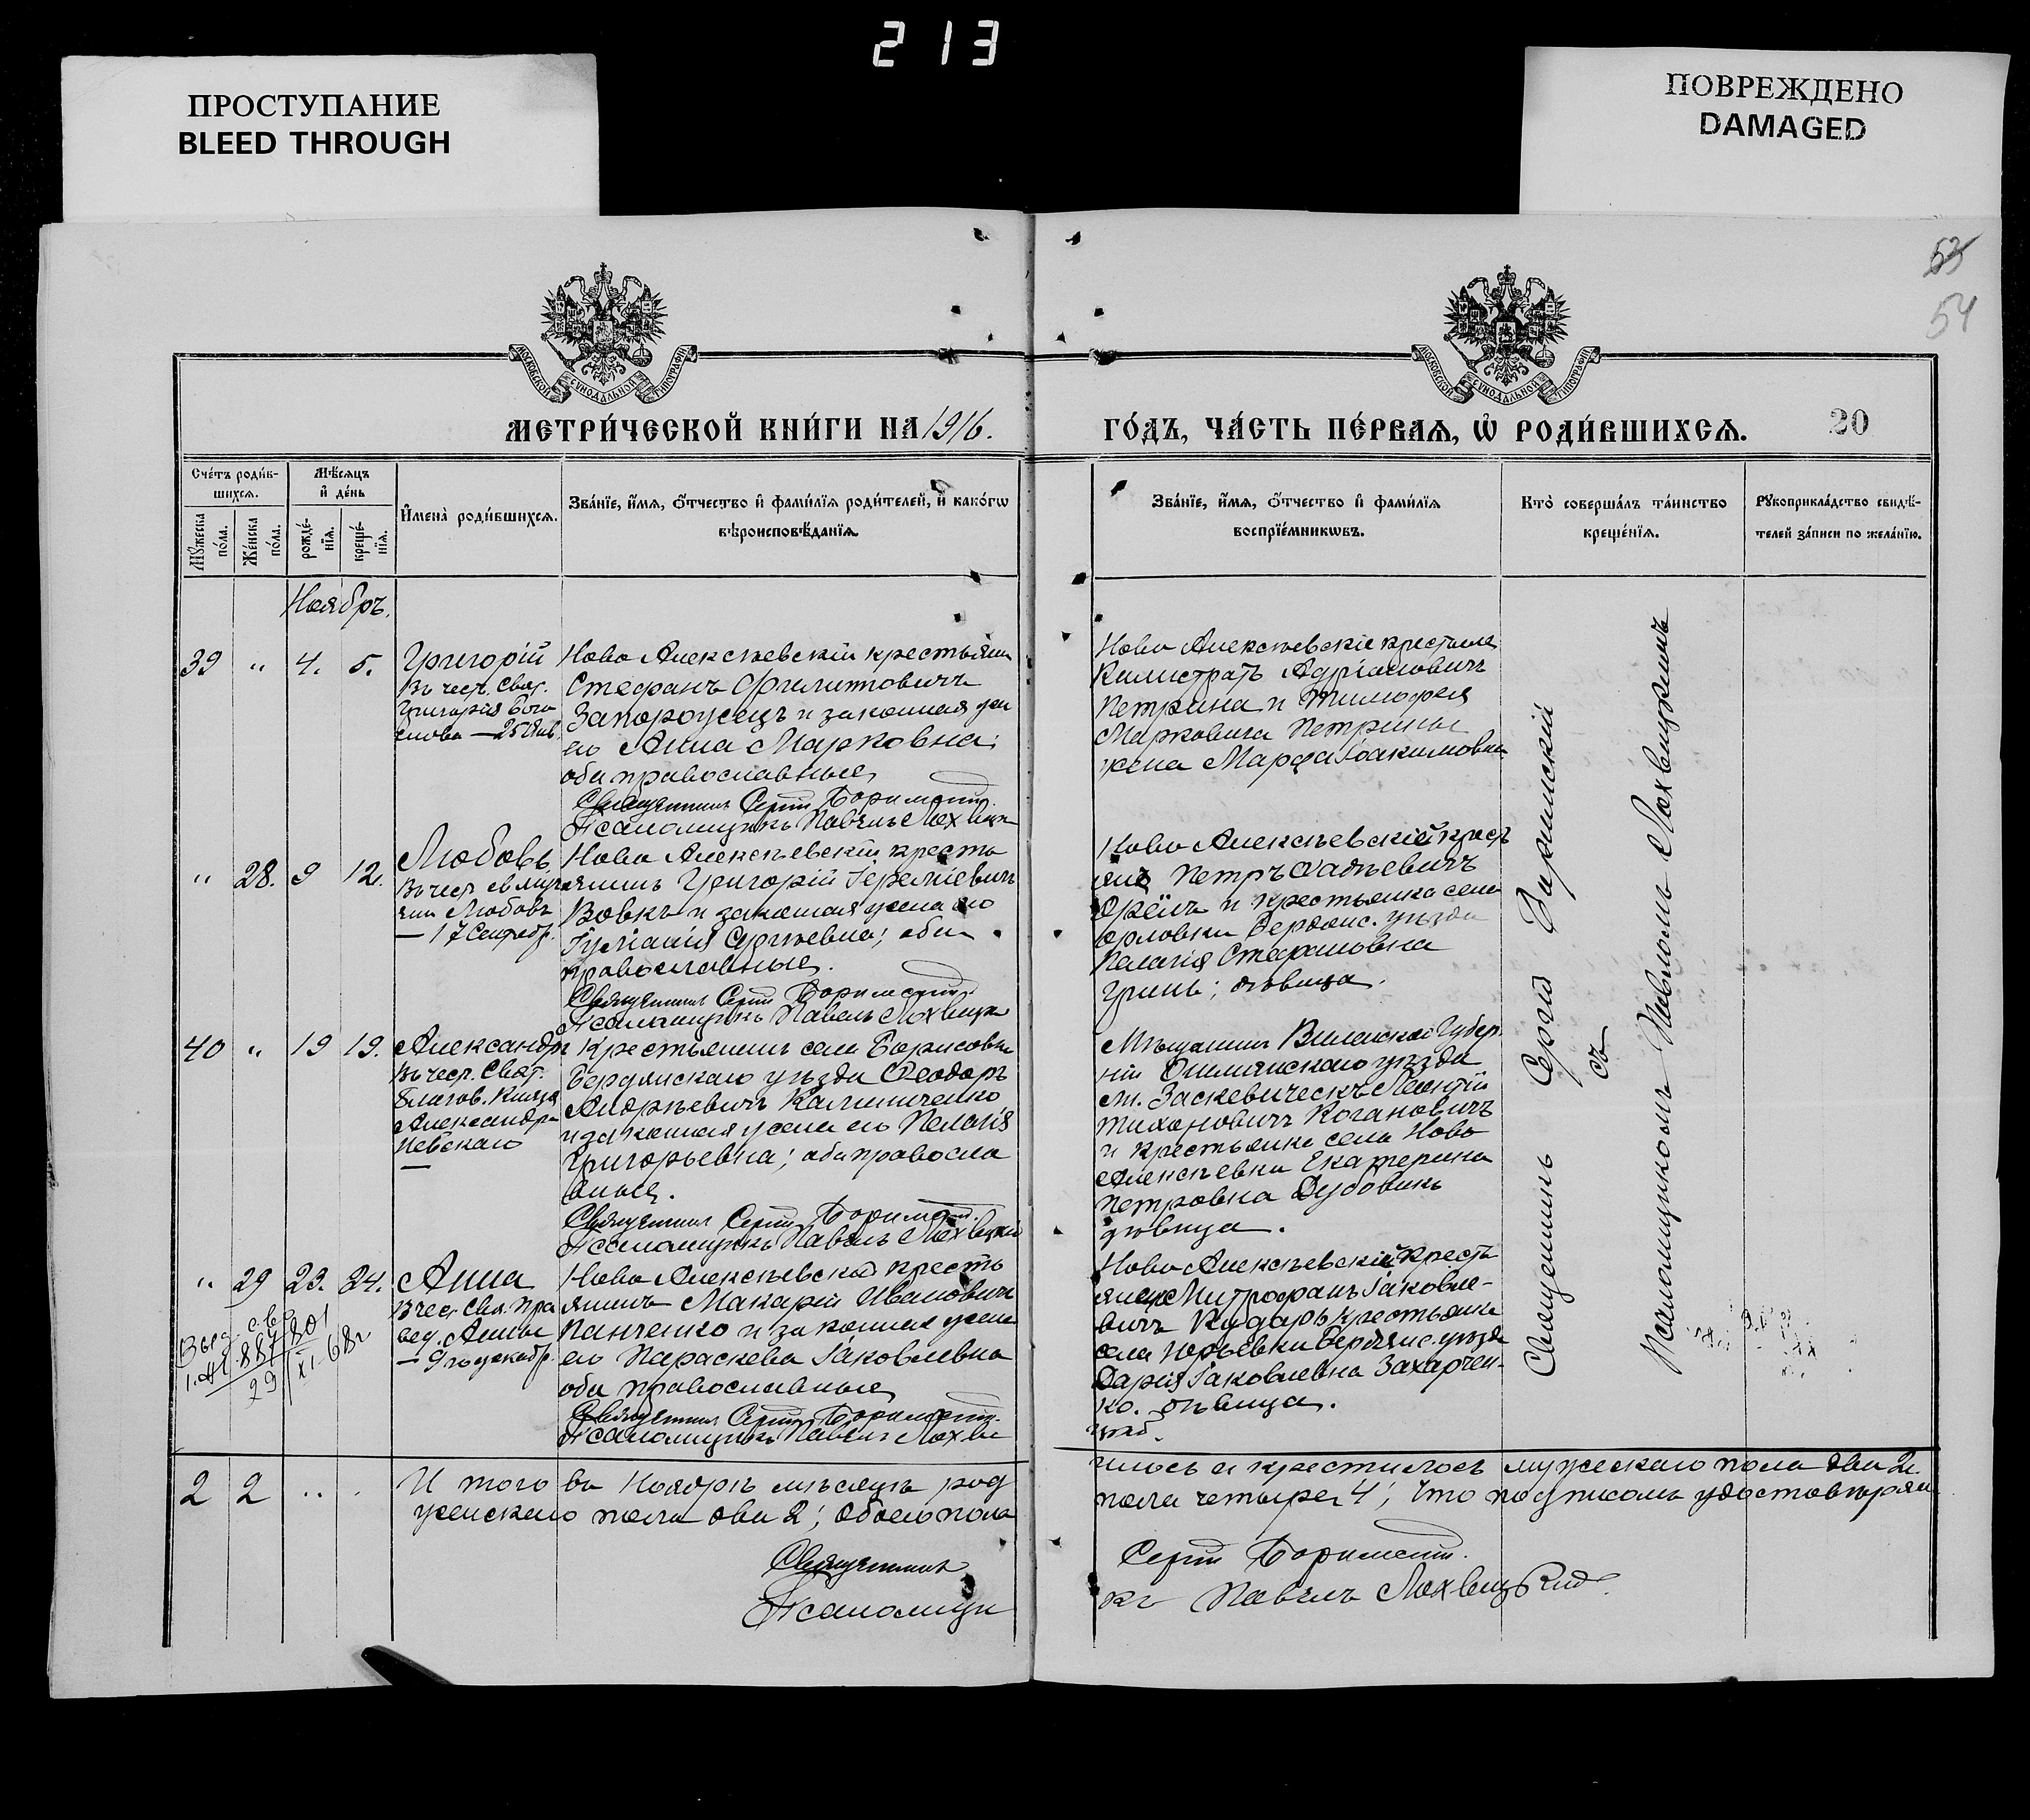 213
ПРОСТУПАНИЕ
BLEED THROUGH
ПОВРЕЖДЕНО
DAMAGED
53
54
МОСКОВСКОЙ СУНОДАЛЬНОЙ ТИПОГРАФІИ
МОСКОВСКОЙ СУНОДАЛЬНОЙ ТИПОГРАФІИ
МЕТРИ́ЧЕСКОЙ КНИ́ГИ НА 1916.
ГО́ДЪ, ЧА́СТЬ ПЕ́РВАѦ, Ѡ҆ РОДИ́ВШИХСѦ. 20
Сче́тъ роди́в-
шихсѧ.
Мꙋжеска по́ла.
Же́нска по́ла.
Мѣ́сѧцъ
и҆ де́нь
рожде́-
нїѧ.
креще́-
нїѧ.
И҆мена̀ роди́вшихсѧ.
Зва́нїе, и҆́мѧ, ѻ҆́тчество и҆ фами́лїѧ роди́телей, и҆ како́гѡ
вѣроисповѣ́данїѧ.
Зва́нїе, и҆́мѧ, ѻ҆́тчество и҆ фами́лїѧ
воспрїе́мникѡвъ.
Кто̀ соверша́лъ та́инство
креще́нїѧ.
Рꙋкоприкла́дство свидѣ́-
телей за́писи по жела́нїю.
Ноябрь.
39 " 4. 5.
Григорій
Въ чест. Свят.
Григорія Бого
слова — 25 Янв.
Ново Алексѣевскій крестьянин
Стефанъ Филиповичъ
Запорожецъ и законная жен
его Анна Марковна;
оба православные
Священникъ Сергій
Псаломщикъ Павелъ Лохвиц
Ново Алексѣевскіе крестьяне
Калистратъ Адріановичъ
Петрина и Тимофея
Марковича Петрины
жена Марфа Іоакимовна
" 28. 9 12.
Любовь
Въ чест. св. муч
Любовь
— 17 Сентябр.
Ново Алексѣевскій кресть
янинъ Григорій Іереміевичъ
Вовкъ и законная жена его
Іуліанія Сергѣевна; оба
православные.
Священникъ Сергій
Псаломщикъ Павелъ Лохвицк
Ново Алексѣевскій крест
янин Петръ Фадѣевичъ
и крестьянка села
Орловки Бердянс. уѣзда
Пелагія Стефановна
Гринь; дѣвица.
40 " 19 19.
Александръ
Въ чест. Свят.
благов. Князя
Александра
Невскаго
—
Крестьянинъ села Борисовки
Бердянскаго уѣзда Ѳеодоръ
Андрѣевичъ Калиниченко
и законная жена его Пелагія
Григорьевна; оба правосла
вные.
Священникъ Сергій
Псаломщикъ Павелъ Лохвицкій
Мѣщанинъ Виленской Губер
ніи Ошмянскаго уѣзда
м. Заскевическъ Леонтій
Тихоновичъ Когановичъ
и крестьянка села Ново
Алексѣевки Екатерина
Петровна Дубовикъ
дѣвица.
" 29 23. 24.
Выд. св.
23 XI-68г
Анна
В чест. Свя. пра
вед. Анны
— 9го декабр.
Ново Алексѣевскій кресть
янинъ Макарій Ивановичъ
Панченко и законная жена
его Параскева Іаковлевна
оба православные
Священникъ Сергій
Псаломщикъ Павелъ Лохви
Ново Алексѣевскій кресть
янинъ Митрофанъ Іаковле-
вичъ Кударь и крестьянка
села Юрьевки Бердянс. уѣзда
Дарія Іаковлевна Захарчен-
ко. дѣвица.
Священникъ Сергій
съ
Псаломщикомъ Павломъ Лохвицкимъ
2 2 .. .
И того въ Ноябрѣ мѣсяцѣ род
илось и крестилось мужескаго пола два 2.
женскаго пола два 2; обоего пола
пола четыре 4; что подписомъ удостовѣряем
Священникъ
Сергій
Псаломщи
къ Павелъ Лохвицкій.